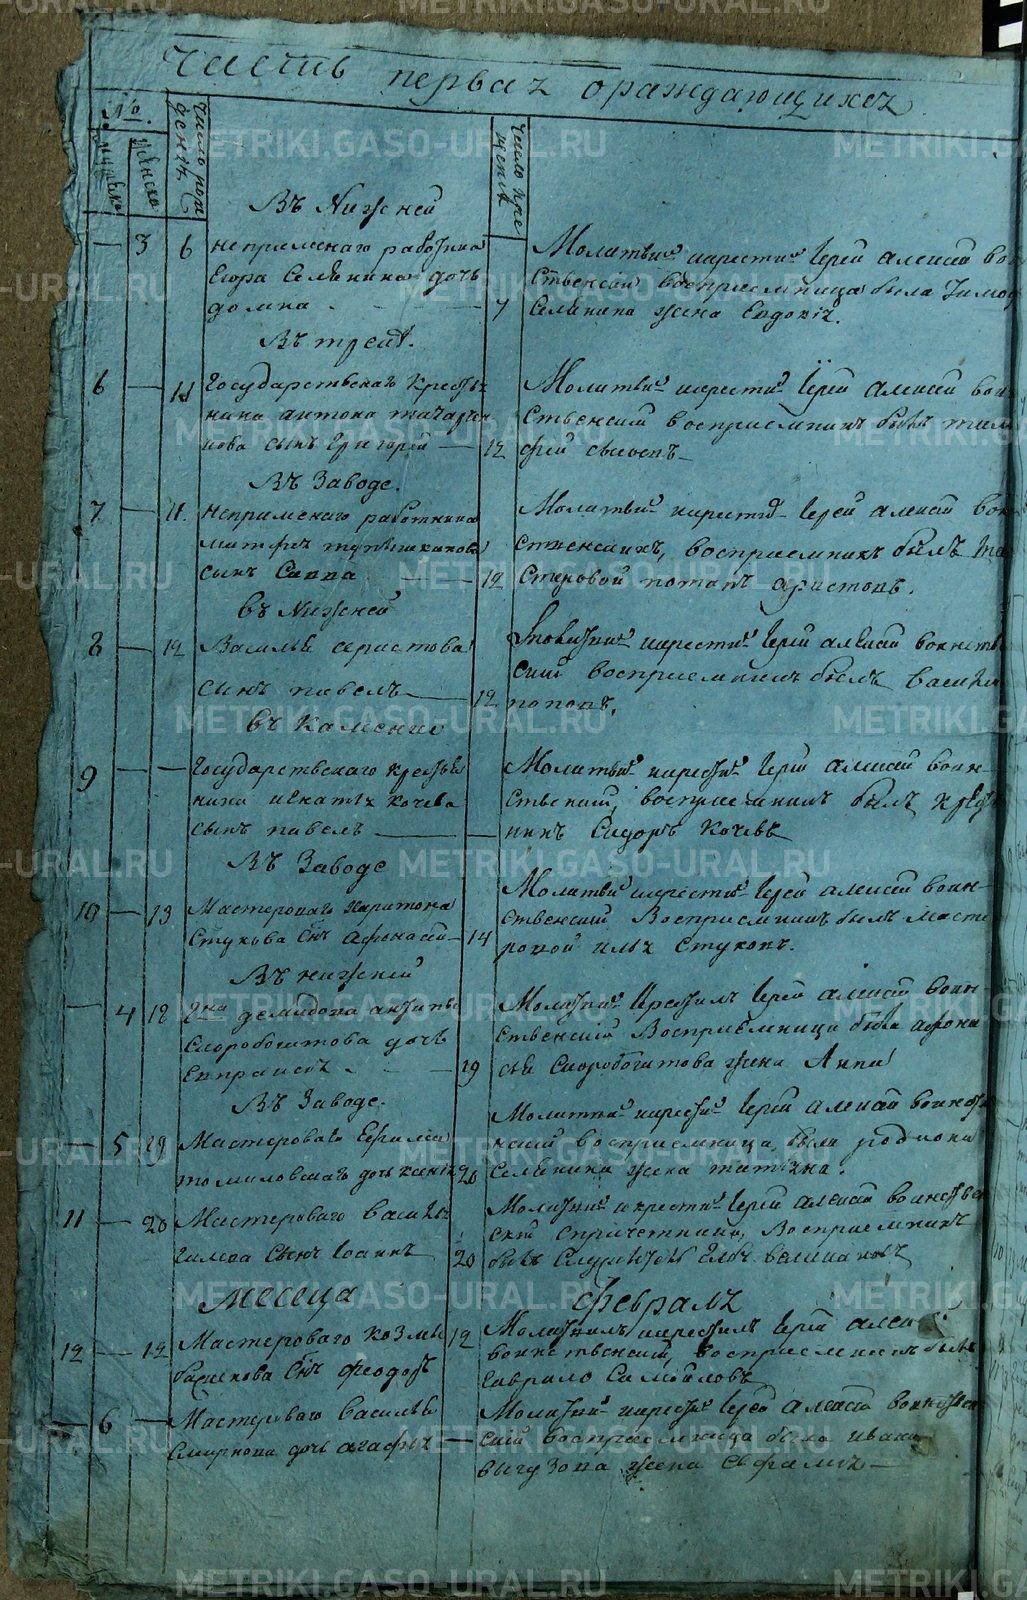 часть первая ораждающихся
№.
мужеска
женска
число рож
дения.
число кре
щения
Въ Нижней
3 6 непремѣнаго работника
Егора Селянина дочь
домна
7
Молитвил и крестил Іерей алексей воин
ственский восприемница была
Селянина жена Евдокия.
Въ
6 11 Государственаго крестья
нина антона
сынъ Григорей
12
Молитвил и крестил Іерей алексей воин
ственский восприемникъ былъ
Въ Заводе.
7 11. непримѣнаго работника
сынъ Савва
12
Молитвил и крестил Іерей алексей воин
ственский, восприемникъ былъ ма
стеровой потапъ аристовъ.
въ Нижней
8 12 Василья аристова
сынъ павелъ
12
Молитвил и крестил Іерей алексей воинств
ский восприемникъ былъ василей
поповъ.
въ Каменке
9 Государственаго крестья
нина игнатья кочева
сынъ павелъ
Молитвил и крестил Іерей алексей воин
ственский, восприемникъ былъ крестья
нинъ Сидоръ Кочевъ
Въ Заводе
10 13 Мастероваго харитона
Стукова Сынъ Афонасей
14
Молитвил и крестил Іерей алексей воин
ственский Восприемникъ былъ масте
ровой илья Стуковъ.
Въ нижней
4 18 демидова антипы
Скоробогатова дочь
Евпраксия
19
Молитвил Крестилъ Іерей алексей воин
ственский Восприемница была афона
сья Скоробогатова жена Анна
Въ Заводе.
5 19 Мастероваго Ефима
томиловскаго дочь ксения
20
Молитвил и крестил Іерей алексей воинств
енский восприемница была родиона
Селянина жена татияна.
11 20 Мастероваго василья
Гилева Сынъ Іоаннъ
20
Молитвил и крестил Іерей алексей воинствен
ский спричетники, Восприемникъ
былъ Служитель Илья великановъ
месеца февраль
12 12 Мастероваго козмы
Сынъ Феодоръ
12
Молитвилъ и крестилъ Іерей алексей
воинственский, восприемникъ былъ
Гаврило Самойловъ
6 Мастероваго Василья
Смирнова дочь агафья
Молитвил и крестил Іерей алексей воинствен
ский восприемница была ивана
выгузова жена Ефимия
METRIKI.GASO-URAL.RU